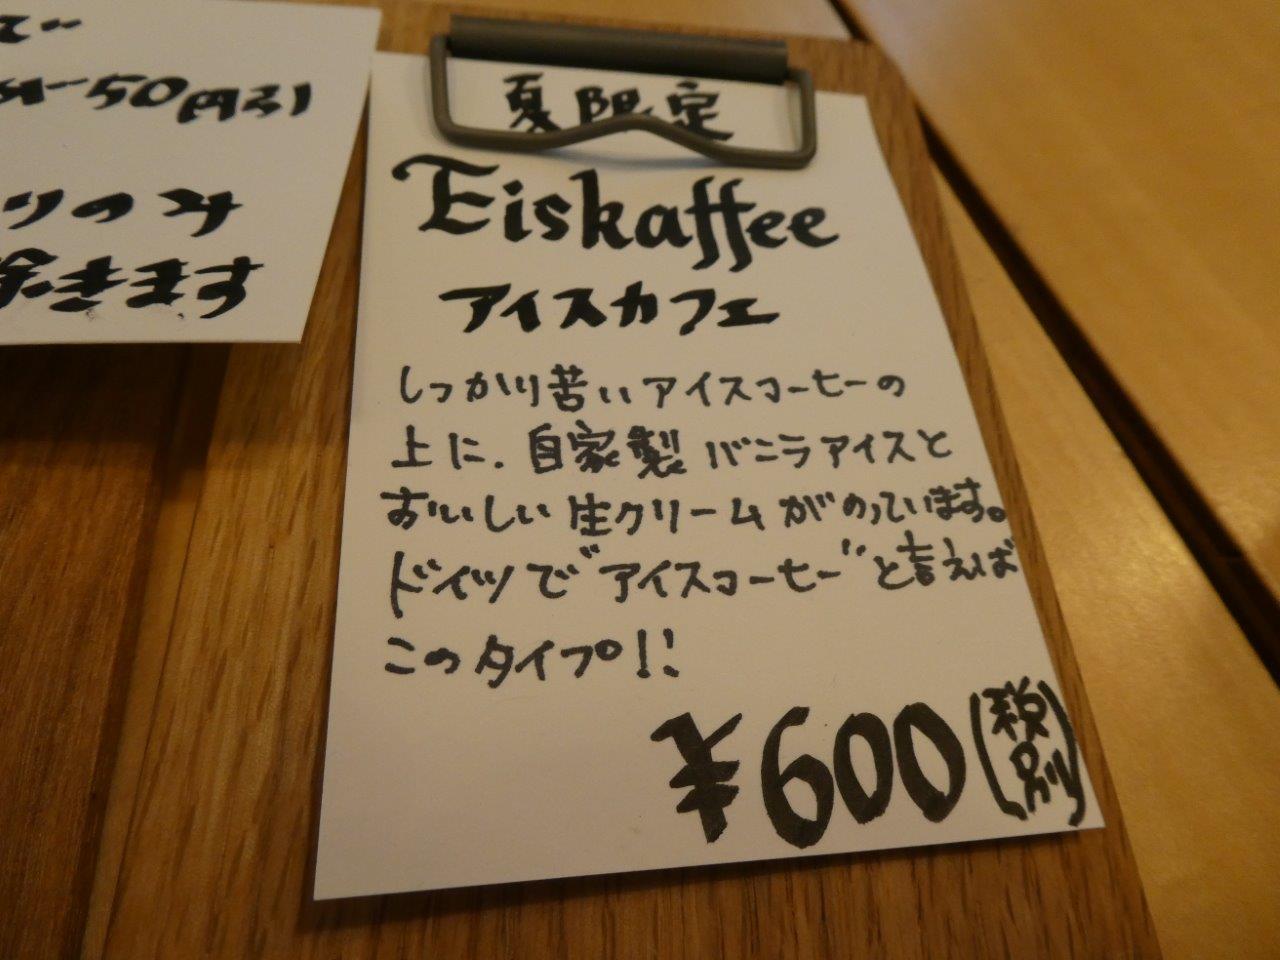 で
50円引
りのみ
きます
夏限定
Eiskaffee
アイスカフェ
しっかり苦いアイスコーヒーの
上に、自家製バニラアイスと
おいしい生クリームがのっています。
ドイツで"アイスコーヒー"と言えば
このタイプ!!
¥600(税別)